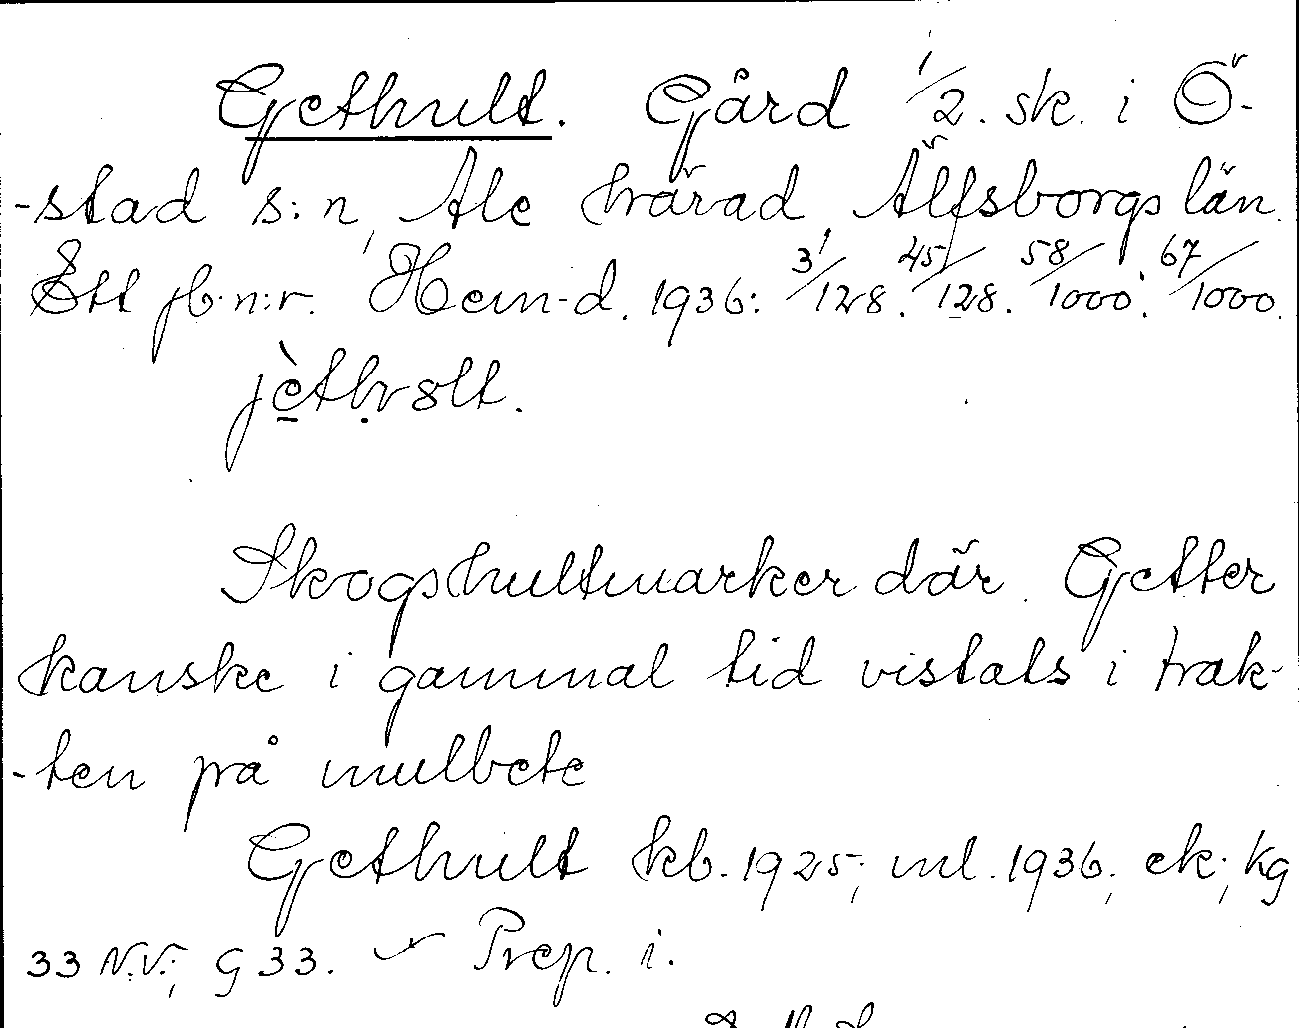 Gethult. Gård 1/2. sk. i Ö-
-stad s:n, Ale härad, Älfsborgs län.
Ett jb.n:r. Hem-d. 1936: 31/128. 45/128. 58/1000. 67/1000.
jèthvält.
Skogshultmarker där Getter
kanske i gammal tid vistats i trak-
-ten på mulbete
Gethult kb. 1925; ml. 1936; ek; kg
33 N.V.; G 33. Prep. i.